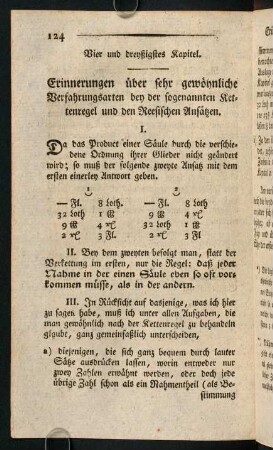 124
Vier und dreyßigstes Kapitel.
Erinnerungen über sehr gewöynliche
Verfahrungsarten bey der sogenannten Ket-
tenregel und den Reesischen Ansätzen.
I.
Da das Product einer Säule durch die verschie-
dene Ordnung ihrer Glieder nicht geändert
wird; so muß der folgende zweyte Ansatz mit dem
ersten einerley Antwort geben.
— Fl. 8 Loth. — Fl. 8 Loth.
32 Loth 1 ℔ 9 ℔ 4
9 ℔ 4 32 Loth 1 ℔
2 3 Fl. 2 3 Fl.
II. Bey dem zweyten befolgt man, statt der
Verkettung im ersten, nur die Regel: daß jeder
Nahme in der einen Säule eben so oft vor-
kommen müsse, als in der andern.
III. In Rücksicht auf dasjenige, was ich hier
zu sagen habe, muß ich unter allen Aufgaben, die
man gewöhnlich nach der Kettenregel zu behandeln
glaubt, ganz gemeinsaßlich unterscheiden,
a) diejenigen, die sich ganz bequem durch lauter
Sätze ausdrücken lassen, worin entweder nur
zwey Zahlen erwähnt werden, oder doch jede
übrige Zahl schon als ein Nahmentheil (als Be-
stimmung